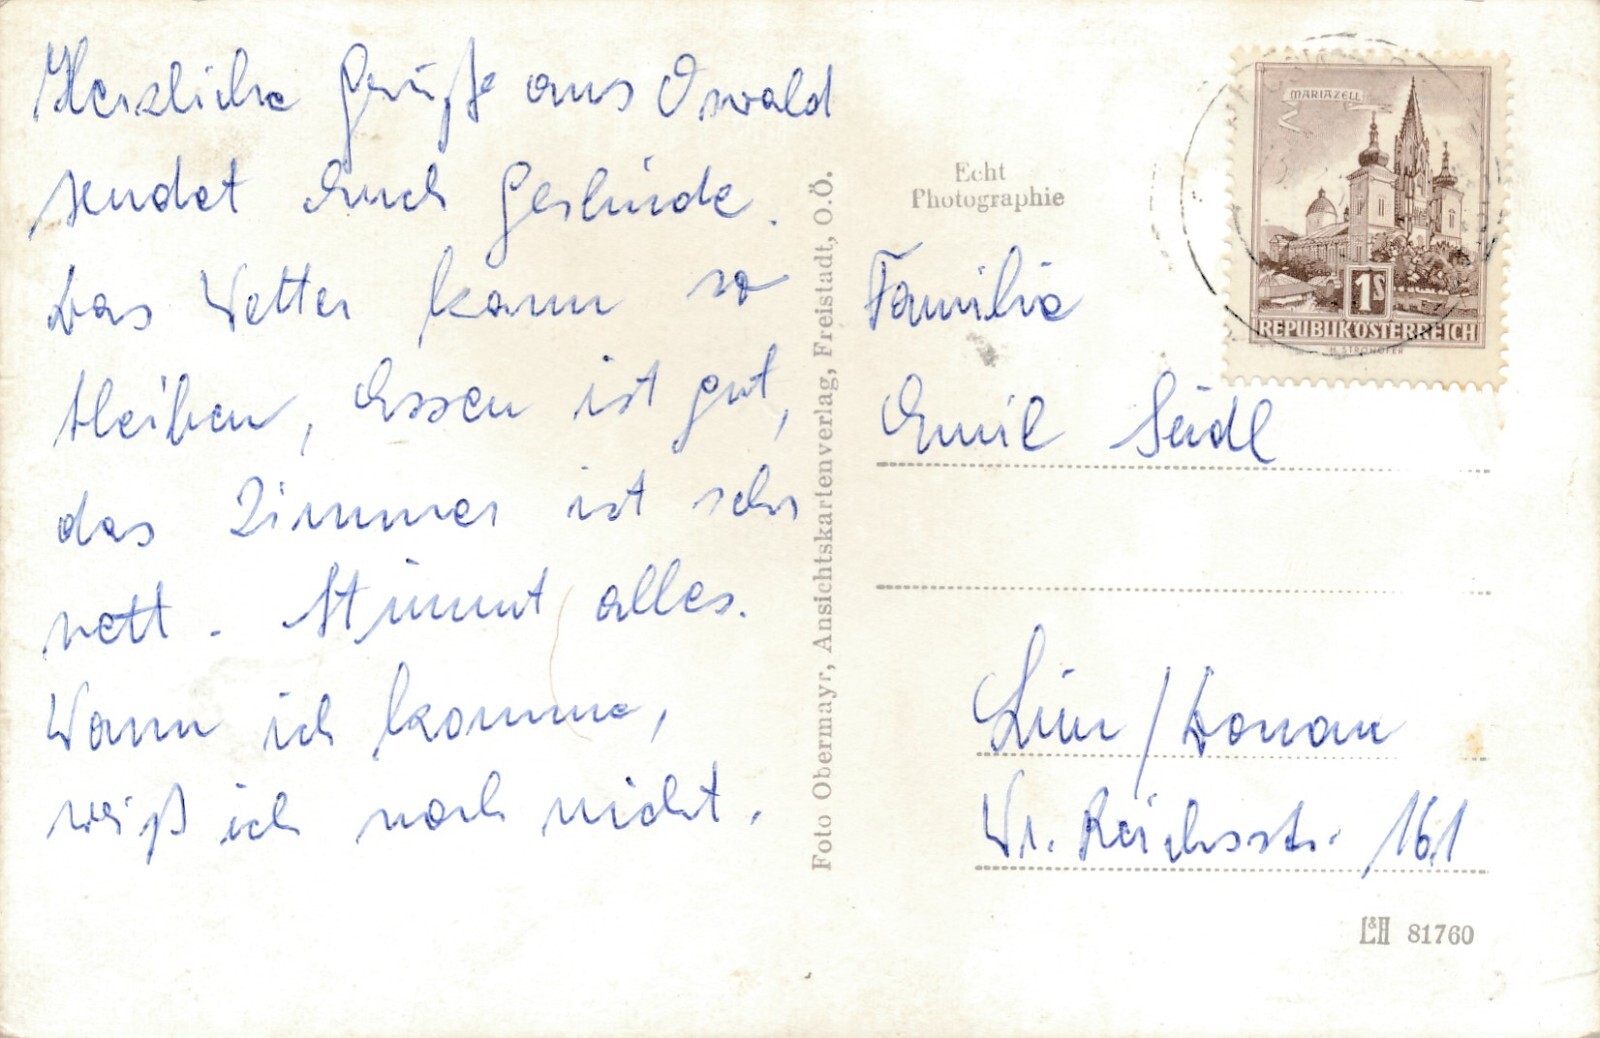 Herzliche Grüße aus Oswald
sendet Euch Gerlinde.
Das Wetter kann so
bleiben, Essen ist gut,
das Zimmer ist sehr
nett. Stimmt alles.
Wann ich komme,
weiß ich noch nicht.
Foto Obermayr, Ansichtskartenverlag, Freistadt, O.Ö.
Echt
Photographie
MARIAZELL
1S
REPUBLIK ÖSTERREICH
H. STROHOFER
Familie
Emil Seidl
Linz/Donau
Wr. Reichsstr. 161
L&H 81760